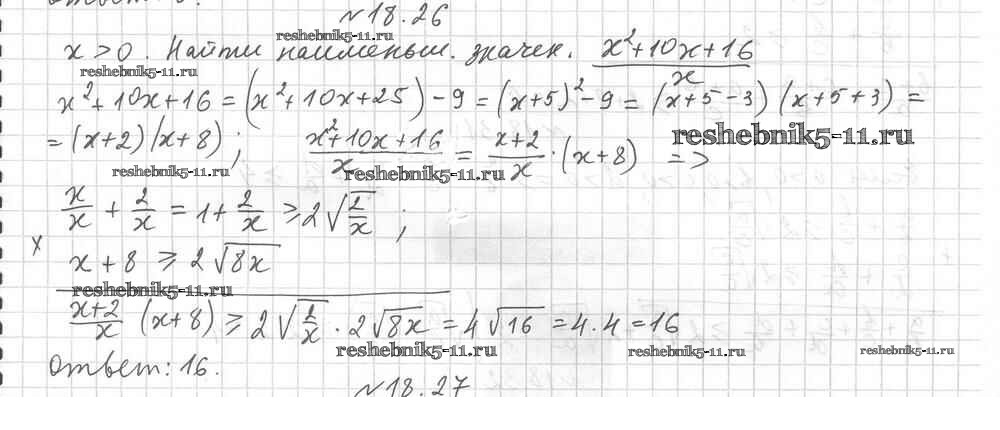 ответ: 8.
№18.26
reshebnik5-11.ru
x > 0. Найти наименьш. значен. (x²+10x+16)/x
reshebnik5-11.ru
x²+10x+16 = (x²+10x+25) - 9 = (x+5)² - 9 = (x+5-3) (x+5+3) =
reshebnik5-11.ru
= (x+2)(x+8); (x²+10x+16)/x = (x+2)/x · (x+8) =>
reshebnik5-11.ru reshebnik5-11.ru
x/x + 2/x = 1 + 2/x ≥ 2√(2/x);
x
x + 8 ≥ 2√(8x)
reshebnik5-11.ru
(x+2)/x (x+8) ≥ 2√(2/x) · 2√(8x) = 4√16 = 4·4 = 16
reshebnik5-11.ru reshebnik5-11.ru reshebnik5-11.ru
Ответ: 16.
№18.27